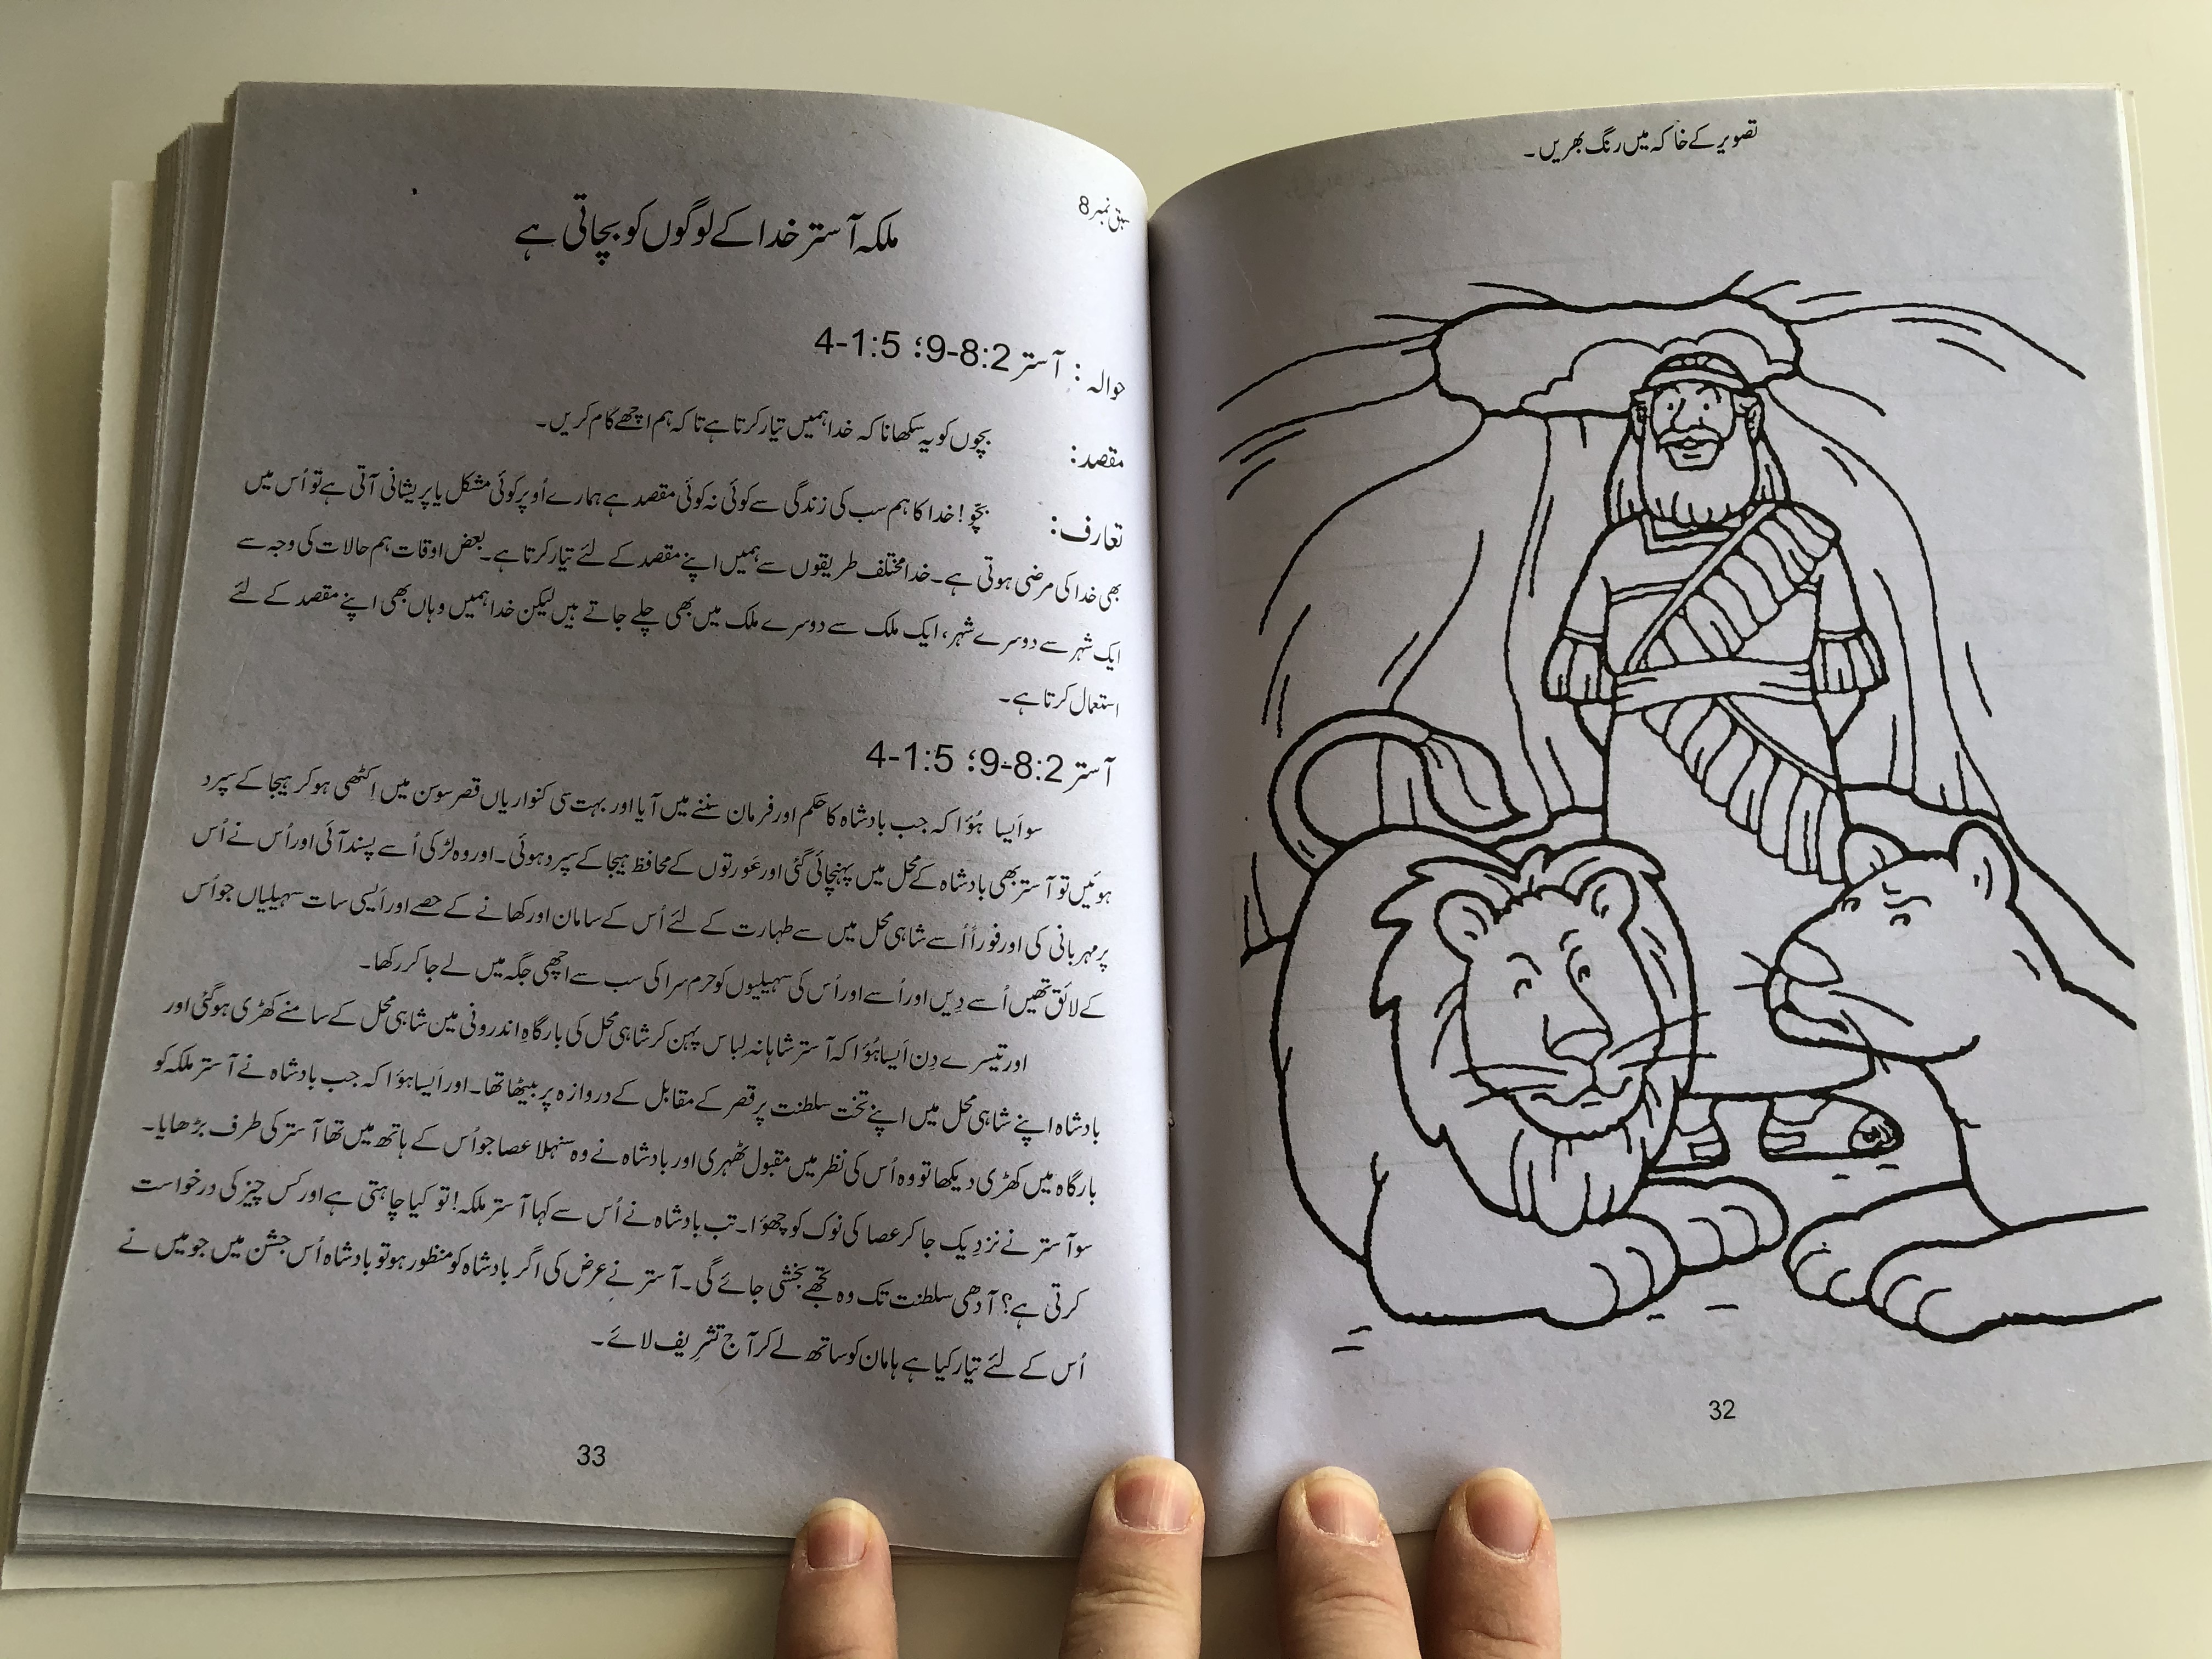 تصویر کے خاکہ میں رنگ بھریں۔
32
سبق نمبر 8
ملکہ آستر خدا کے لوگوں کو بچاتی ہے
حوالہ: آستر 8:2-9؛ 1:5-4
مقصد: بچوں کو یہ سکھانا کہ خدا ہمیں تیار کرتا ہے تا کہ ہم اچھے کام کریں۔
تعارف: بچّو! خدا کا ہم سب کی زندگی سے کوئی نہ کوئی مقصد ہے ہمارے اُوپر کوئی مشکل یا پریشانی آتی ہے تو اُس میں
بھی خدا کی مرضی ہوتی ہے۔ خدا مختلف طریقوں سے ہمیں اپنے مقصد کے لئے تیار کرتا ہے۔ بعض اوقات ہم حالات کی وجہ سے
ایک شہر سے دوسرے شہر، ایک ملک سے دوسرے ملک میں بھی چلے جاتے ہیں لیکن خدا ہمیں وہاں بھی اپنے مقصد کے لئے
استعمال کرتا ہے۔
آستر 8:2-9؛ 1:5-4
سو اَیسا ہُؤا کہ جب بادشاہ کا حکم اور فرمان سننے میں آیا اور بہت سی کنواریاں قصرِ سوسن میں اِکٹھی ہو کر ہیجا کے سپرد
ہوئیں تو آستر بھی بادشاہ کے محل میں پہنچائی گئی اور عَورتوں کے محافظ ہیجا کے سپرد ہوئی۔ اور وہ لڑکی اُسے پسند آئی اور اُس نے اُس
پر مہربانی کی اور فوراً اُسے شاہی محل میں سے طہارت کے لئے اُس کے سامان اور کھانے کے حصے اور اَیسی سات سہیلیاں جو اُس
کے لائق تھیں اُسے دِیں اور اُسے اور اُس کی سہیلیوں کو حرم سرا کی سب سے اچھی جگہ میں لے جا کر رکھا۔
اور تیسرے دِن اَیسا ہُؤا کہ آستر شاہانہ لباس پہن کر شاہی محل کی بارگاہِ اندرونی میں شاہی محل کے سامنے کھڑی ہو گئی اور
بادشاہ اپنے شاہی محل میں اپنے تخت سلطنت پر قصر کے مقابل کے دروازہ پر بیٹھا تھا۔ اور اَیسا ہؤا کہ جب بادشاہ نے آستر ملکہ کو
بارگاہ میں کھڑی دیکھا تو وہ اُس کی نظر میں مقبول ٹھہری اور بادشاہ نے وہ سنہلا عصا جو اُس کے ہاتھ میں تھا آستر کی طرف بڑھایا۔
سو آستر نے نزدِیک جا کر عصا کی نوک کو چھؤا۔ تب بادشاہ نے اُس سے کہا آستر ملکہ! تو کیا چاہتی ہے اور کس چیز کی درخواست
کرتی ہے؟ آدھی سلطنت تک وہ تجھے بخشی جائے گی۔ آستر نے عرض کی اگر بادشاہ کو منظور ہو تو بادشاہ اُس جشن میں جو میں نے
اُس کے لئے تیار کیا ہے ہامان کو ساتھ لے کر آج تشریف لائے۔
33